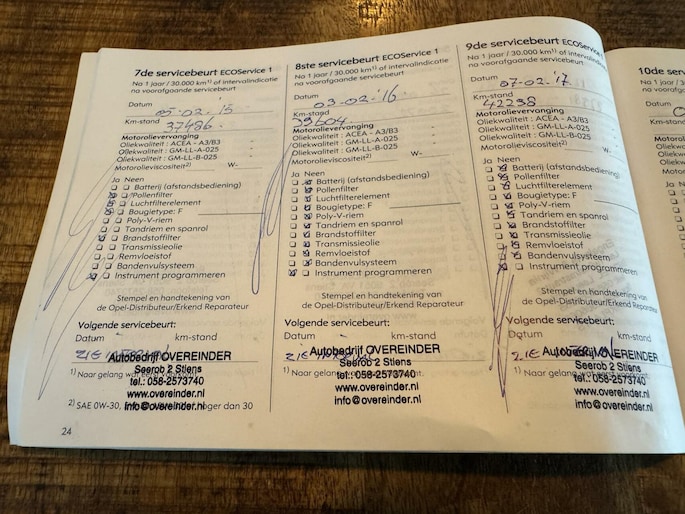 7de servicebeurt ECOService 1
Na 1 jaar / 30.000 km¹⁾ of intervalindicatie
na voorafgaande servicebeurt
Datum
05-02-'15
Km-stand
37486.
Motorolievervanging
Oliekwaliteit : ACEA - A3/B3
Oliekwaliteit : GM-LL-A-025
Oliekwaliteit : GM-LL-B-025
Motorolieviscositeit²⁾ W-
Ja Neen
Batterij (afstandsbediening)
Pollenfilter
Luchtfilterelement
Bougietype: F
Poly-V-riem
Tandriem en spanrol
Brandstoffilter
Transmissieolie
Remvloeistof
Bandenvulsysteem
Instrument programmeren
Stempel en handtekening van
de Opel-Distributeur/Erkend Reparateur
Volgende servicebeurt:
Datum km-stand
ZIE
Autobedrijf OVEREINDER
Seerob 2 Stiens
1) Naar gelang
tel.: 058-2573740
www.overeinder.nl
2) SAE 0W-30, hoger dan 30
info@overeinder.nl
24
8ste servicebeurt ECOService 1
Na 1 jaar / 30.000 km¹⁾ of intervalindicatie
na voorafgaande servicebeurt
Datum
03-02-'16
Km-stand
39604.
Motorolievervanging
Oliekwaliteit : ACEA - A3/B3
Oliekwaliteit : GM-LL-A-025
Oliekwaliteit : GM-LL-B-025
Motorolieviscositeit²⁾ W-
Ja Neen
Batterij (afstandsbediening)
Pollenfilter
Luchtfilterelement
Bougietype: F
Poly-V-riem
Tandriem en spanrol
Brandstoffilter
Transmissieolie
Remvloeistof
Bandenvulsysteem
Instrument programmeren
Stempel en handtekening van
de Opel-Distributeur/Erkend Reparateur
Volgende servicebeurt:
Datum km-stand
ZIE
Autobedrijf OVEREINDER
Seerob 2 Stiens
1) Naar gelang
tel.: 058-2573740
www.overeinder.nl
info@overeinder.nl
9de servicebeurt ECOService
Na 1 jaar / 30.000 km¹⁾ of intervalindica
na voorafgaande servicebeurt
Datum
07-02-'17
Km-stand
42238
Motorolievervanging
Oliekwaliteit : ACEA - A3/B3
Oliekwaliteit : GM-LL-A-025
Oliekwaliteit : GM-LL-B-025
Motorolieviscositeit²⁾ W-
Ja Neen
Batterij (afstandsbediening)
Pollenfilter
Luchtfilterelement
Bougietype: F
Poly-V-riem
Tandriem en spanrol
Brandstoffilter
Transmissieolie
Remvloeistof
Bandenvulsysteem
Instrument programmeren
Stempel en handtekening van
de Opel-Distributeur/Erkend Reparateur
Volgende servicebeurt:
Datum km-stand
ZIE
Autobedrijf OVEREINDER
Seerob 2 Stiens
1) Naar gelang
tel.: 058-2573740
www.overeinder.nl
info@overeinder.nl
10de
Na 1
na v
Datu
Km